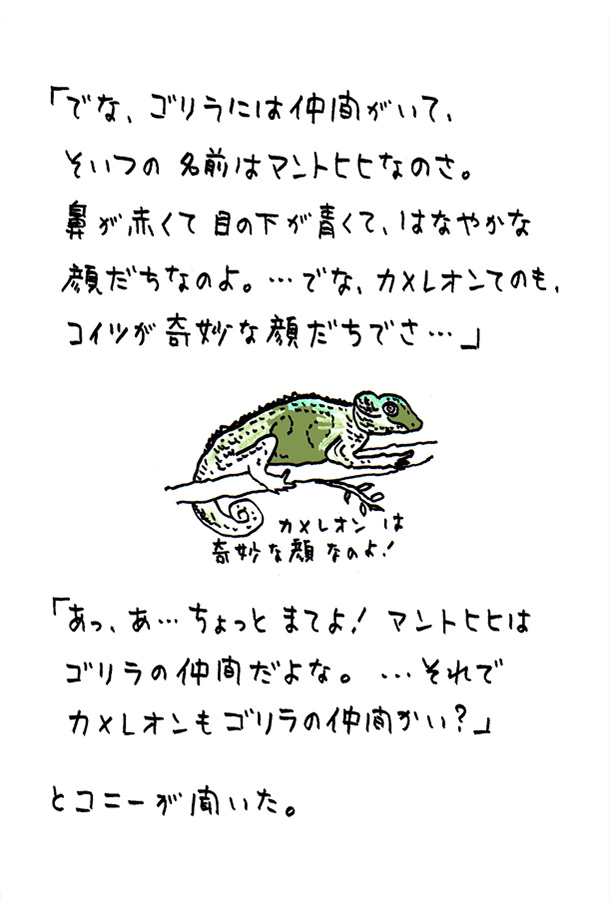 「でな、ゴリラには仲間がいて、
そいつの名前はマントヒヒなのさ。
鼻が赤くて目の下が青くて、はなやかな
顔だちなのよ。…でな、カメレオンてのも、
コイツが奇妙な顔だちでさ…」
カメレオンは
奇妙な顔なのよ!
「あっ、あ…ちょっとまてよ! マントヒヒは
ゴリラの仲間だよな。…それで
カメレオンもゴリラの仲間かい?」
とコニーが聞いた。